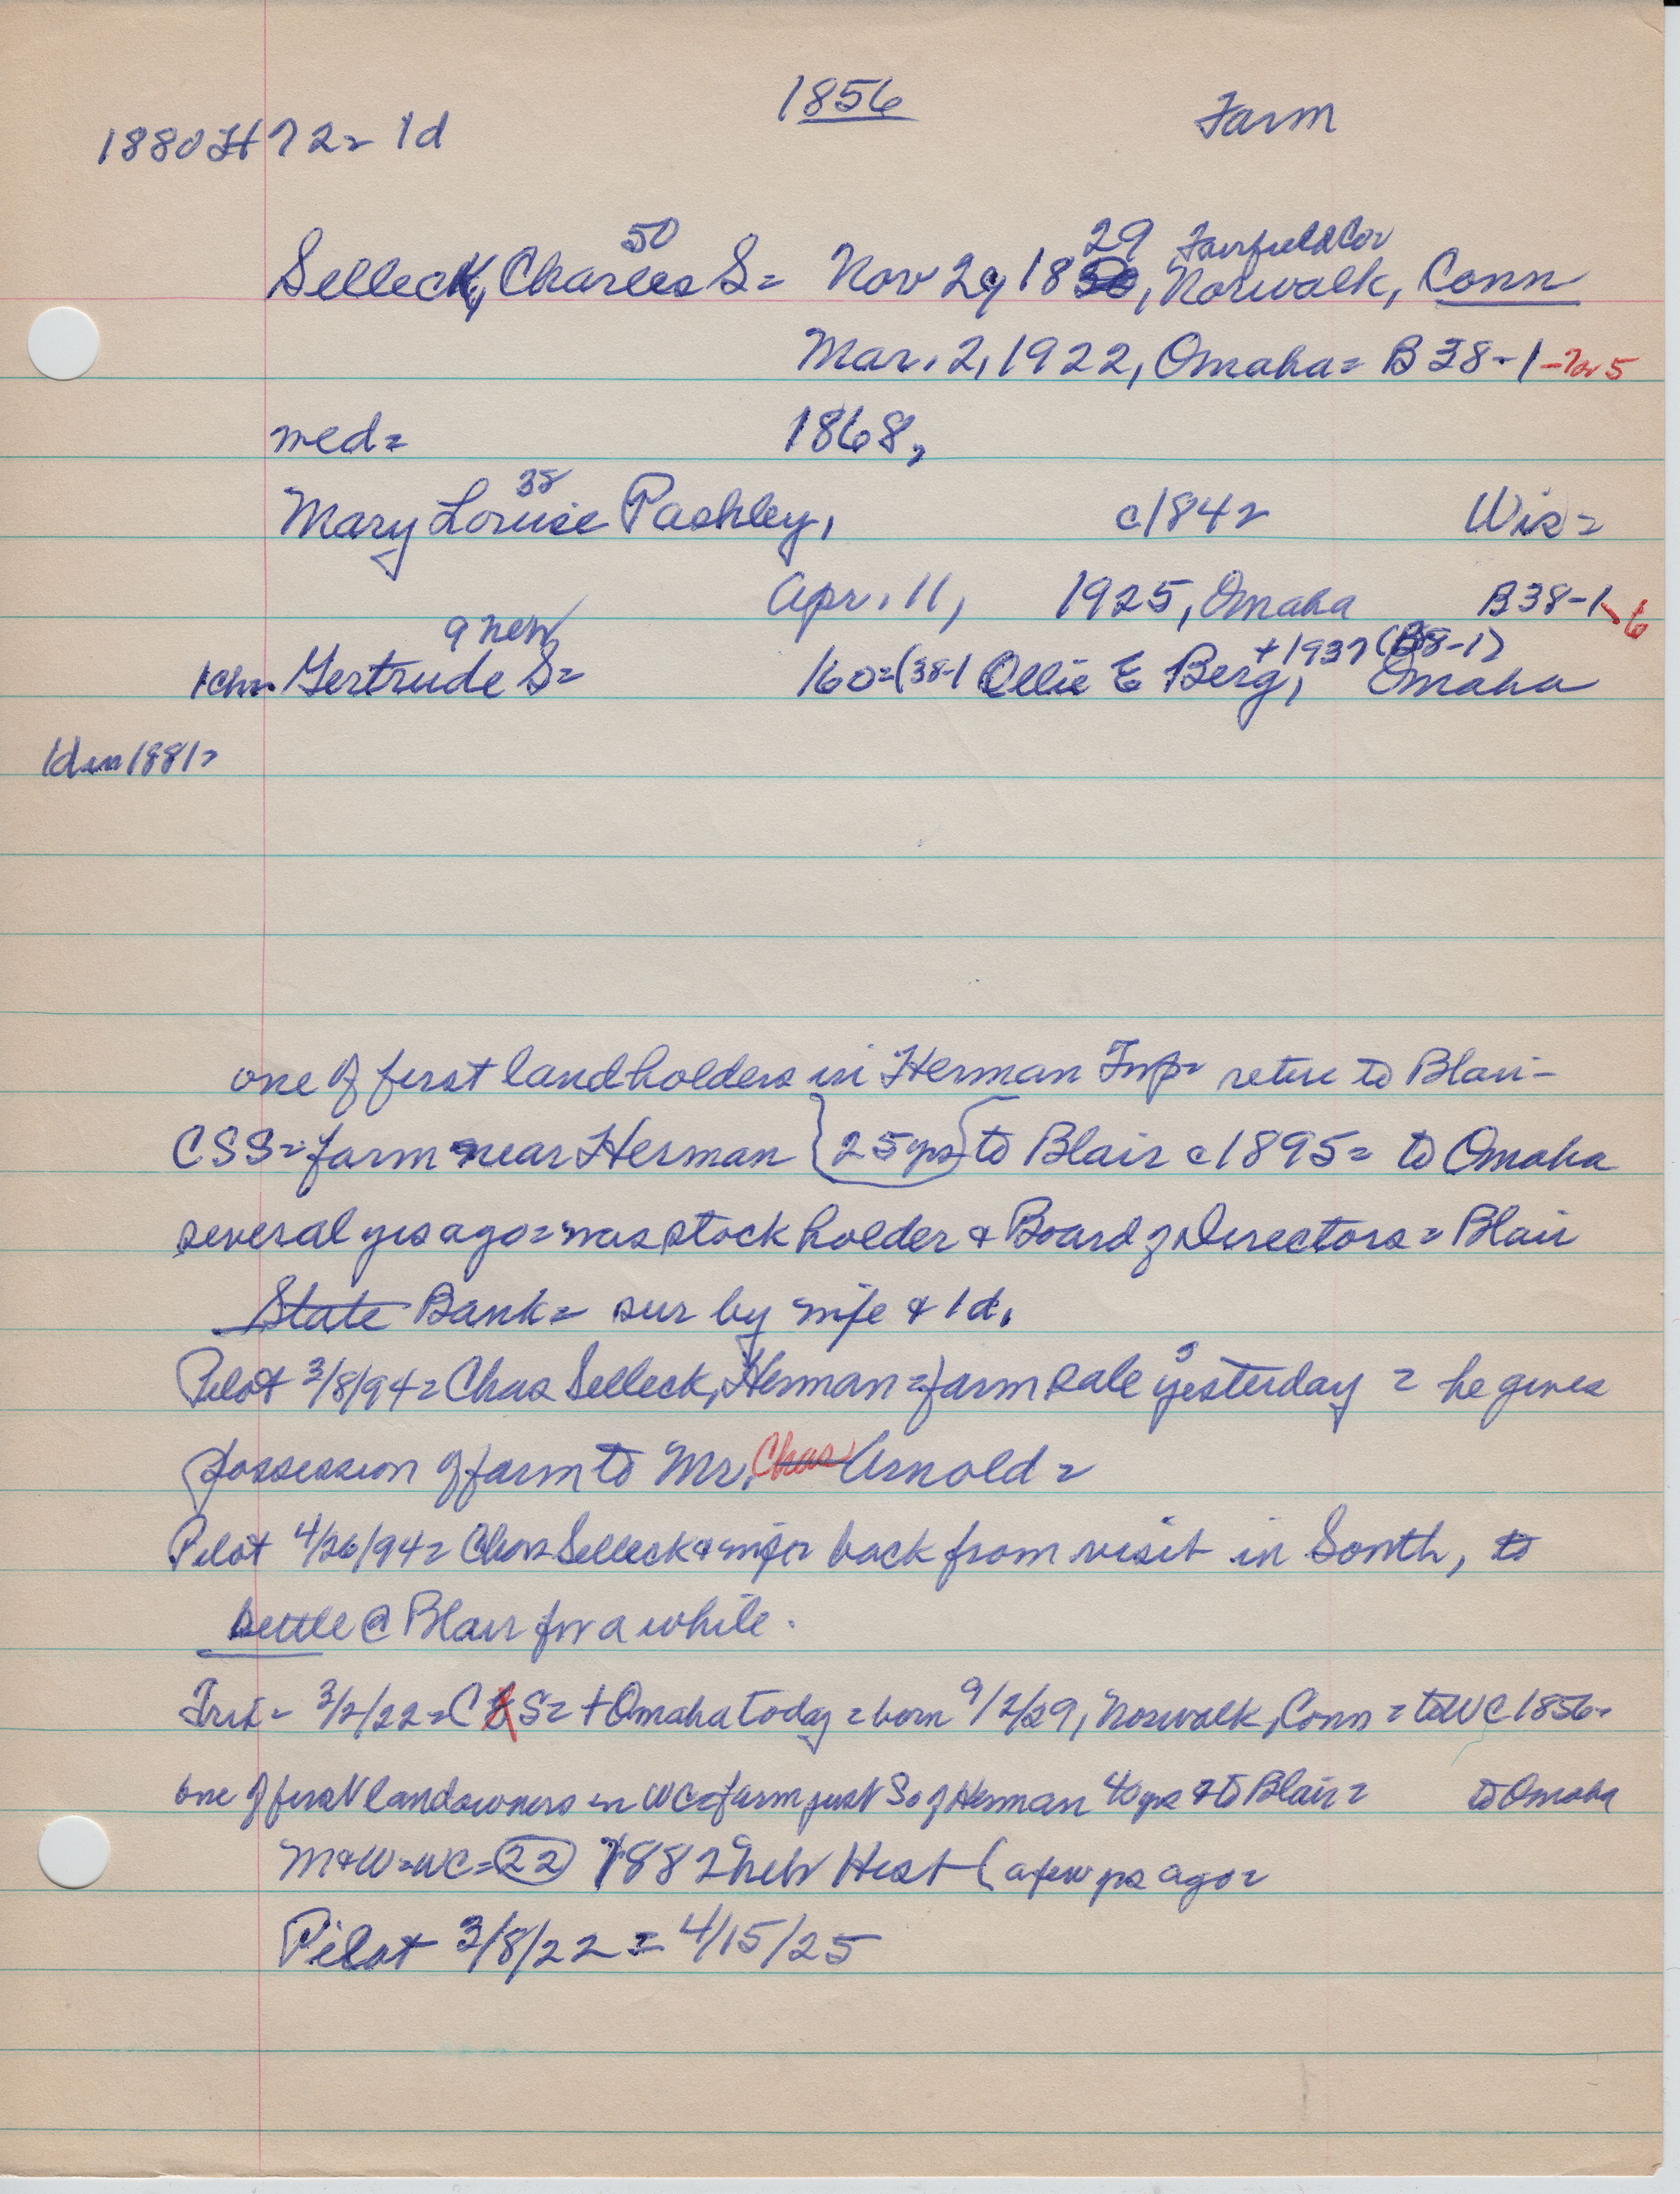 1856
Farm
1880 H 72= 1d
50 29 Fairfield Co=
Selleck, Charles S= Nov 29, 18, Norwalk, Conn
Mar. 2, 1922, Omaha= B 38-1 - 5
med= 1868,
38
Mary Louise Pashley, c1842 Wis=
Apr. 11, 1925, Omaha B38-1-6
9 new +1937 (B38-1)
1Chr. Gertrude S= 160=(38-1 Ollie E Berg, Omaha
1d in 1881=
one of first landholders in Herman Twp= retire to Blair-
CSS= farm near Herman {25 yrs} to Blair c1895= to Omaha
several yrs ago= was stock holder & Board of Directors= Blair
State Bank= sur by wife & 1d.
Pilot 3/8/94= Chas Selleck, Herman= farm sale yesterday = he gives
possession of farm to Mr. Chas Arnold=
Pilot 4/26/94= Chas Selleck & wife back from visit in South, to
settle @ Blair for a while.
3/2/22= C S= + Omaha today= born 9/2/29, Norwalk, Conn= to WC 1856=
one of first landowners in WC= farm just So of Herman 40 yrs & to Blair= to Omaha
M&W=WC= 22 1882 Neb Hist (a few yrs ago=
Pilot 3/8/22 = 4/15/25